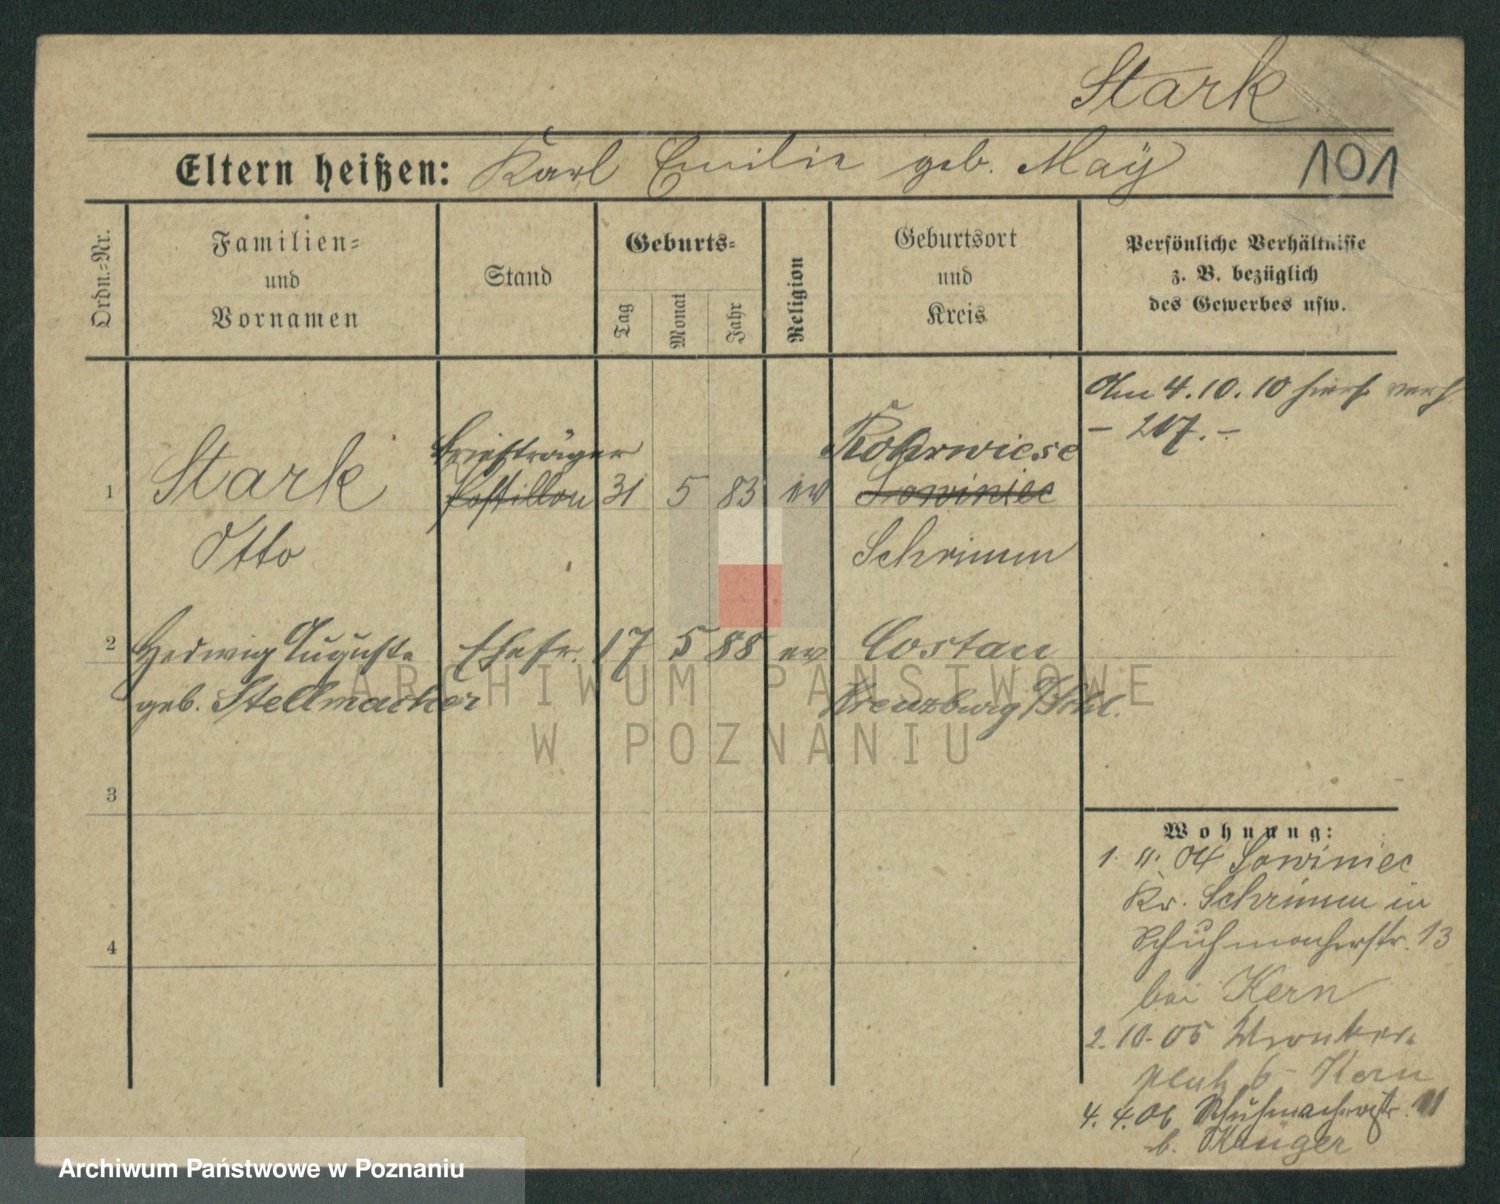 Stark
Eltern heißen: Karl Emilie geb. Maÿ
101
Ordn.=Nr.
Familien=
und
Vornamen
Stand
Geburts=
Tag
Monat
Jahr
Religion
Geburtsort
und
Kreis
Persönliche Verhältnisse
z. B. bezüglich
des Gewerbes usw.
Am 4.10.10 hier verh
– 217. –
1
Stark
Otto
Briefträger
Postillon
31 5 83 ev
Rohrwiese
Lowiniec
Schrimm
2
Hedwig Auguste
geb. Stellmacher
Ehefr. 17 5 88 ev
Costau
Kreuzburg
3
4
Wohnung:
1. 11. 04 Lowiniec
Kr. Schrimm in
Schuhmacherstr. 13
bei Kern
2. 10. 05 Wronker
platz 6 Kern
4. 4. 06 Schuhmacherstr. 11
b. Krüger
ARCHIWUM PAŃSTWOWE
W POZNANIU
Archiwum Państwowe w Poznaniu